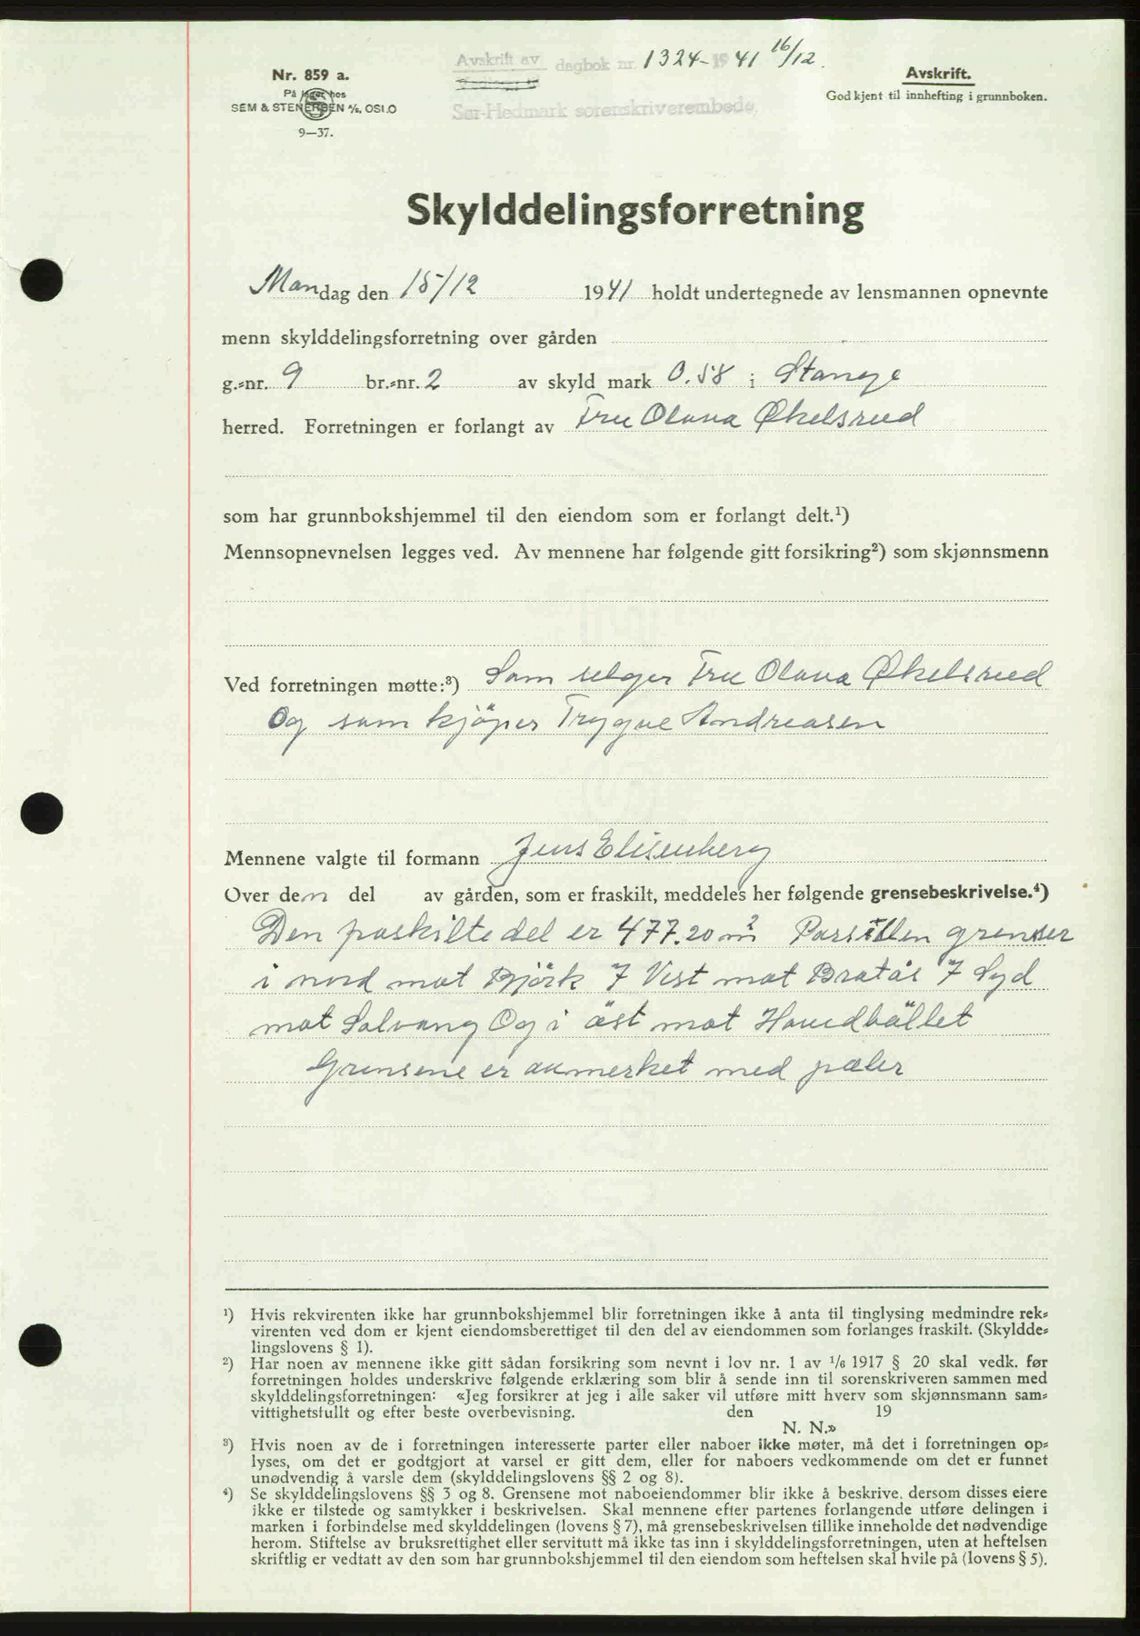 Avskrift av dagbok nr. 1324-1941 16/12.
Nr. 859 a.
Avskrift.
På lager hos
Godkjent til innhefting i grunnboken.
SEM & STENERSEN A/S, OSLO
Sør-Hedmark sorenskriverembede
9—37.
Skylddelingsforretning
Mandag den 15/12 1941 holdt undertegnede av lensmannen opnevnte
menn skylddelingsforretning over gården
g.=nr. 9 br.=nr. 2 av skyld mark 0.58 i Stange
herred. Forretningen er forlangt av Fru Olava Økelsrud
som har grunnbokshjemmel til den eiendom som er forlangt delt.¹)
Mennsopnevnelsen legges ved. Av mennene har følgende gitt forsikring²) som skjønnsmenn
Ved forretningen møtte:³) Som selger Fru Olava Økelsrud
Og som kjöper Trygve Andreasen
Mennene valgte til formann Jens Elisenberg
Over den del av gården, som er fraskilt, meddeles her følgende grensebeskrivelse.⁴)
Den fraskilte del er 477.20 m² Parsillen grenser
i nord mot Björk 7 Vest mot Bratås 7 Syd
mot Solvang Og i öst mot
Grensene er anmerket med pæler
¹) Hvis rekvirenten ikke har grunnbokshjemmel blir forretningen ikke å anta til tinglysing medmindre rek=
virenten ved dom er kjent eiendomsberettiget til den del av eiendommen som forlanges fraskilt. (Skyldde=
lingslovens § 1).
²) Har noen av mennene ikke gitt sådan forsikring som nevnt i lov nr. 1 av 1/6 1917 § 20 skal vedk. før
forretningen holdes underskrive følgende erklæring som blir å sende inn til sorenskriveren sammen med
skylddelingsforretningen: «Jeg forsikrer at jeg i alle saker vil utføre mitt hverv som skjønnsmann sam=
vittighetsfullt og efter beste overbevisning. den 19
N. N.»
³) Hvis noen av de i forretningen interesserte parter eller naboer ikke møter, må det i forretningen op=
lyses, om det er godtgjort at varsel er gitt dem, eller for naboers vedkommende om det er funnet
unødvendig å varsle dem (skylddelingslovens §§ 2 og 8).
⁴) Se skylddelingslovens §§ 3 og 8. Grensene mot naboeiendommer blir ikke å beskrive, dersom disses eiere
ikke er tilstede og samtykker i beskrivelsen. Skal mennene efter partenes forlangende utføre delingen i
marken i forbindelse med skylddelingen (lovens § 7), må grensebeskrivelsen tillike inneholde det nødvendige
herom. Stiftelse av bruksrettighet eller servitutt må ikke tas inn i skylddelingsforretningen, uten at heftelsen
skriftlig er vedtatt av den som har grunnbokshjemmel til den eiendom som heftelsen skal hvile på (lovens § 5).